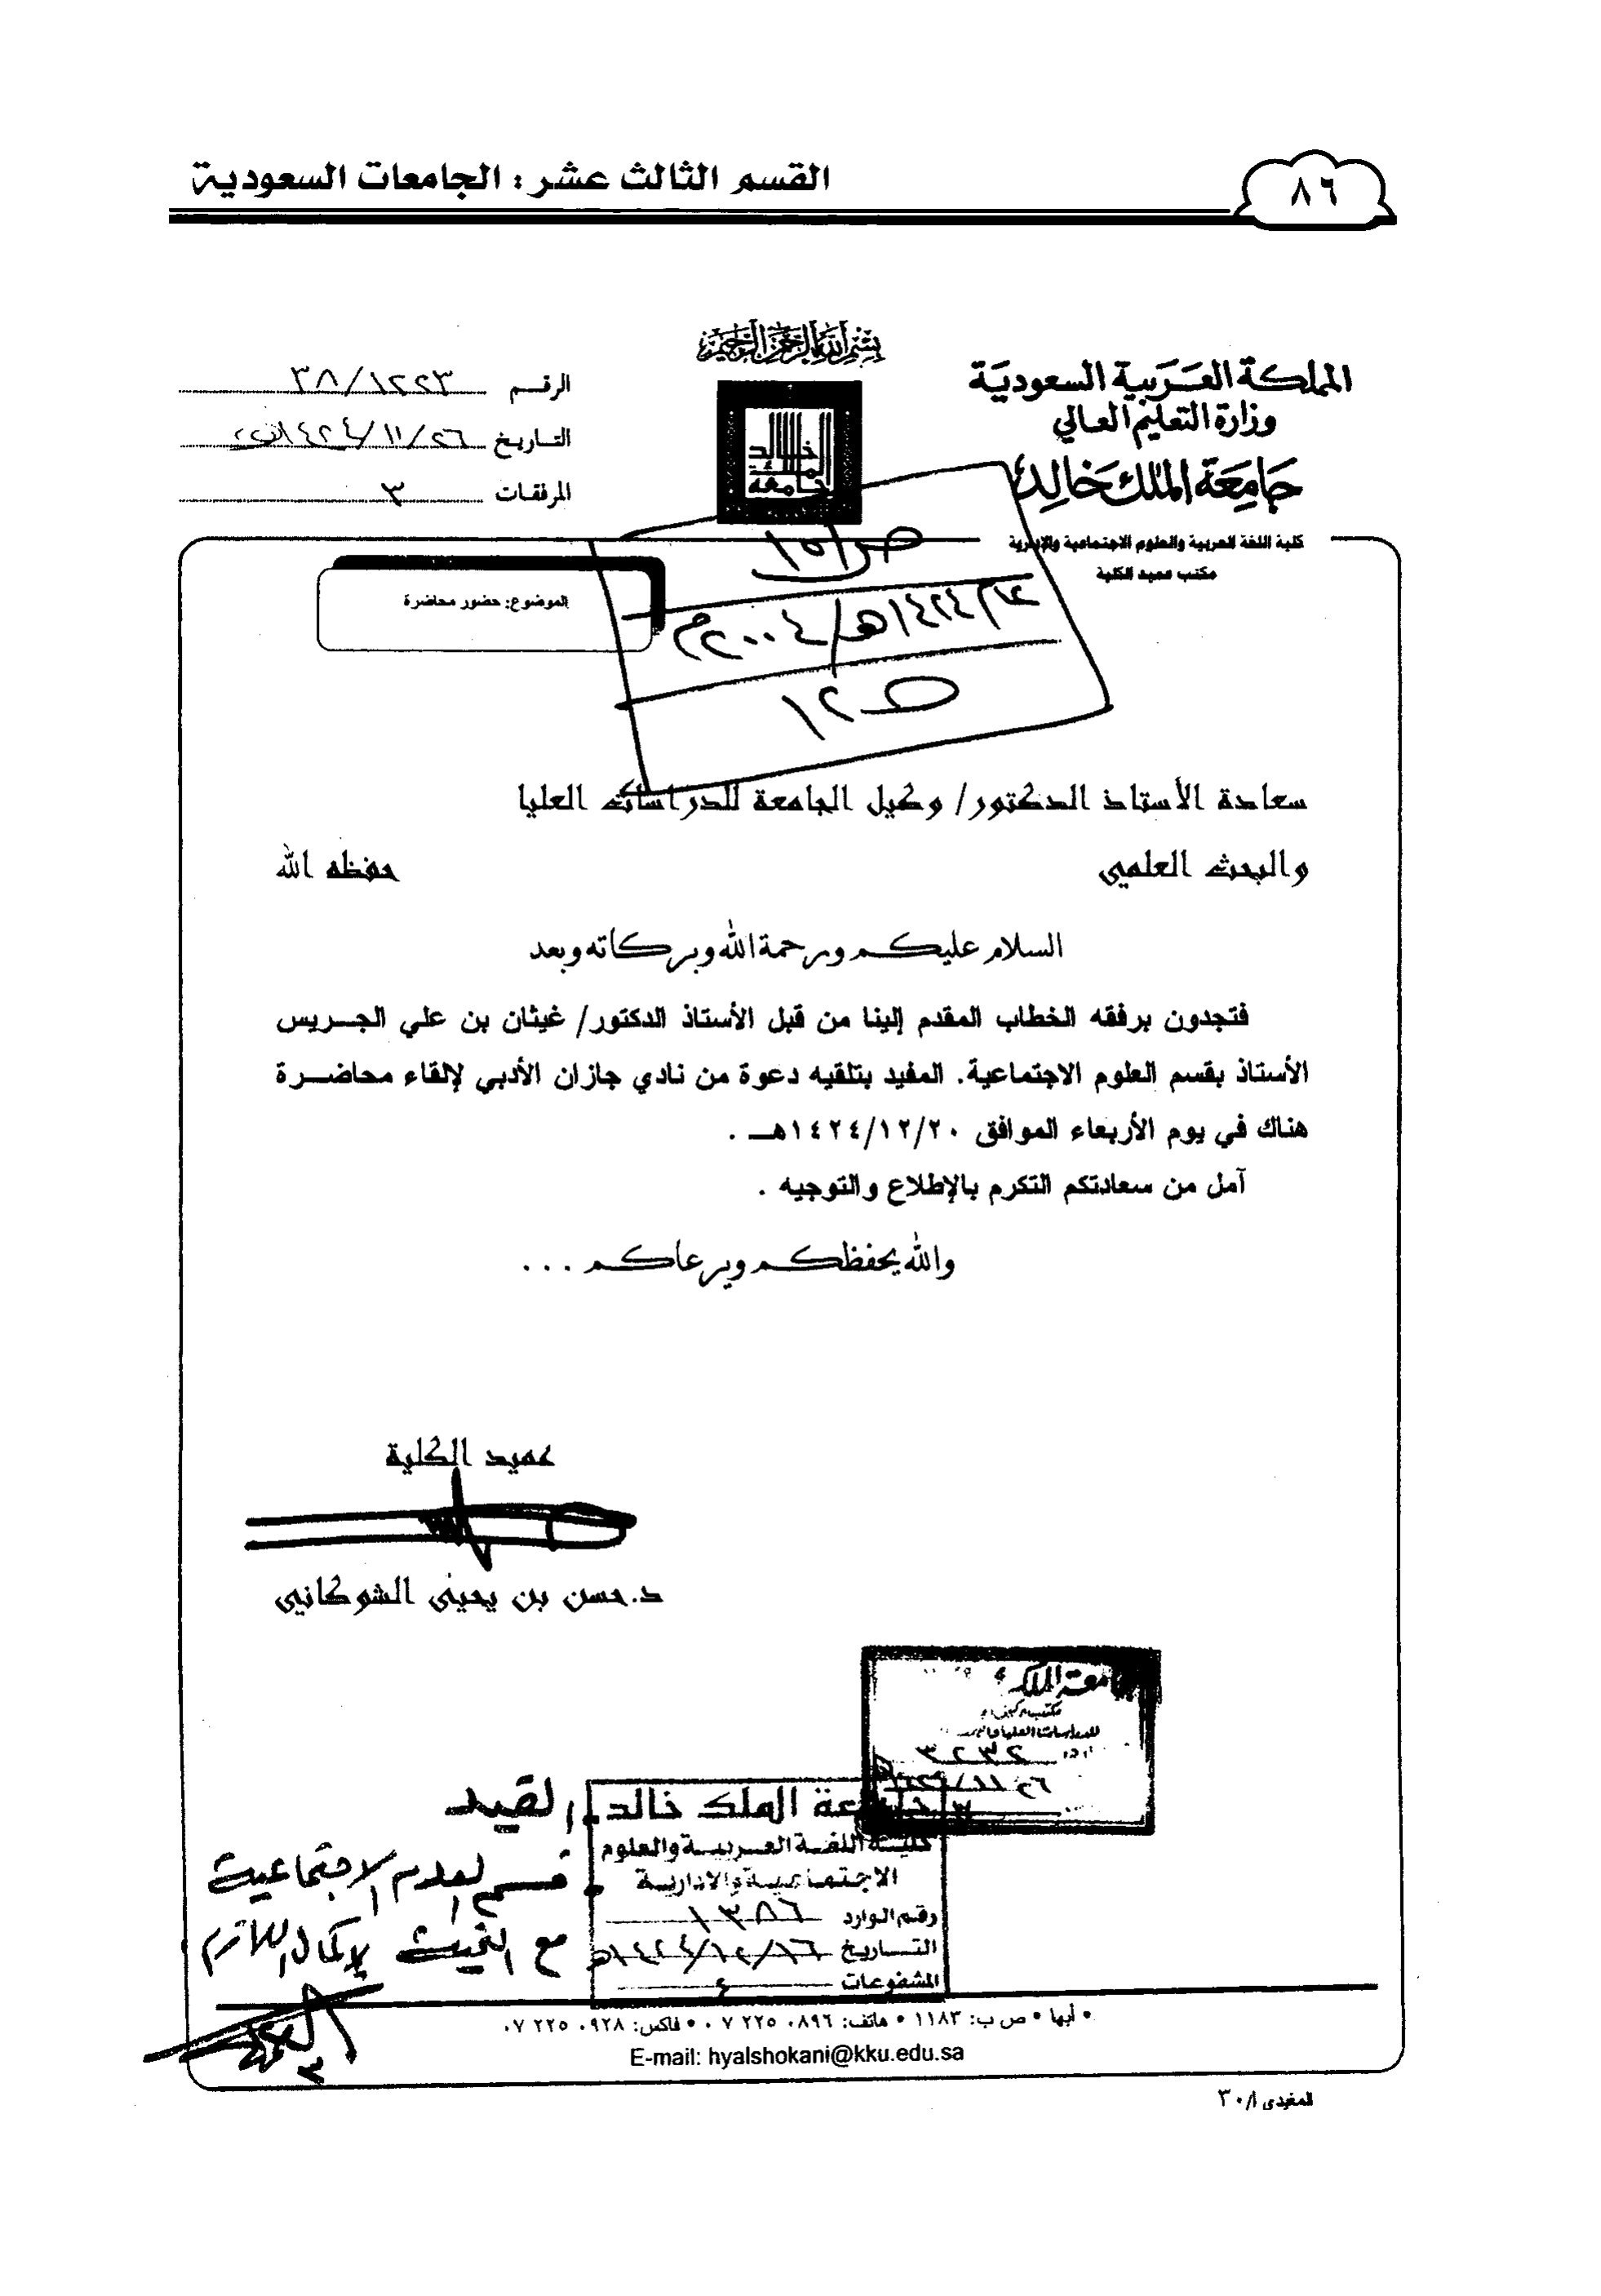 ٨٦
القسم الثالث عشر : الجامعات السعودية
بسم الله الرحمن الرحيم
المملكة العربية السعودية
وزارة التعليم العالي
جامعة الملك خالد
كلية اللغة العربية والعلوم الاجتماعية والإدارية
مكتب عميد الكلية
جامعة الملك خالد
الرقم ٣٨/١٢٢٣
التاريخ ١٤٢٤/١١/٢٦
المرفقات ٣
الموضوع: حضور محاضرة
ص/١٥
١٤٢٤هـ/٢٠٠٤م
ص١٢
سعادة الأستاذ الدكتور/ وكيل الجامعة للدراسات العليا
والبحث العلمي حفظه الله
السلام عليكم ورحمة الله وبركاته وبعد
فتجدون برفقه الخطاب المقدم إلينا من قبل الأستاذ الدكتور/ غيثان بن علي الجريس
الأستاذ بقسم العلوم الاجتماعية. المفيد بتلقيه دعوة من نادي جازان الأدبي لإلقاء محاضرة
هناك في يوم الأربعاء الموافق ١٤٢٤/١٢/٢٠هـ .
آمل من سعادتكم التكرم بالإطلاع والتوجيه .
والله يحفظكم ويرعاكم ...
عميد الكلية
د.حسن بن يحيى الشوكاني
للدراسات العليا
٣٢٣٢
جامعة الملك خالد
كلية اللغة العربية والعلوم
الاجتماعية والادارية
رقم الوارد ١٣٨٦
التاريخ ١٤٢٤/١٢/١٦هـ
المشفوعات ٤
القيد
قسم العلوم الاجتماعية
مع التحية لإكمال اللازم
• أبها • ص ب: ١١٨٣ • هاتف: ٠٨٩٦ ٢٢٥ ٠٧ • فاكس: ٠٩٢٨ ٢٢٥ ٠٧
E-mail: hyalshokani@kku.edu.sa
المفيدي ٣٠/أ